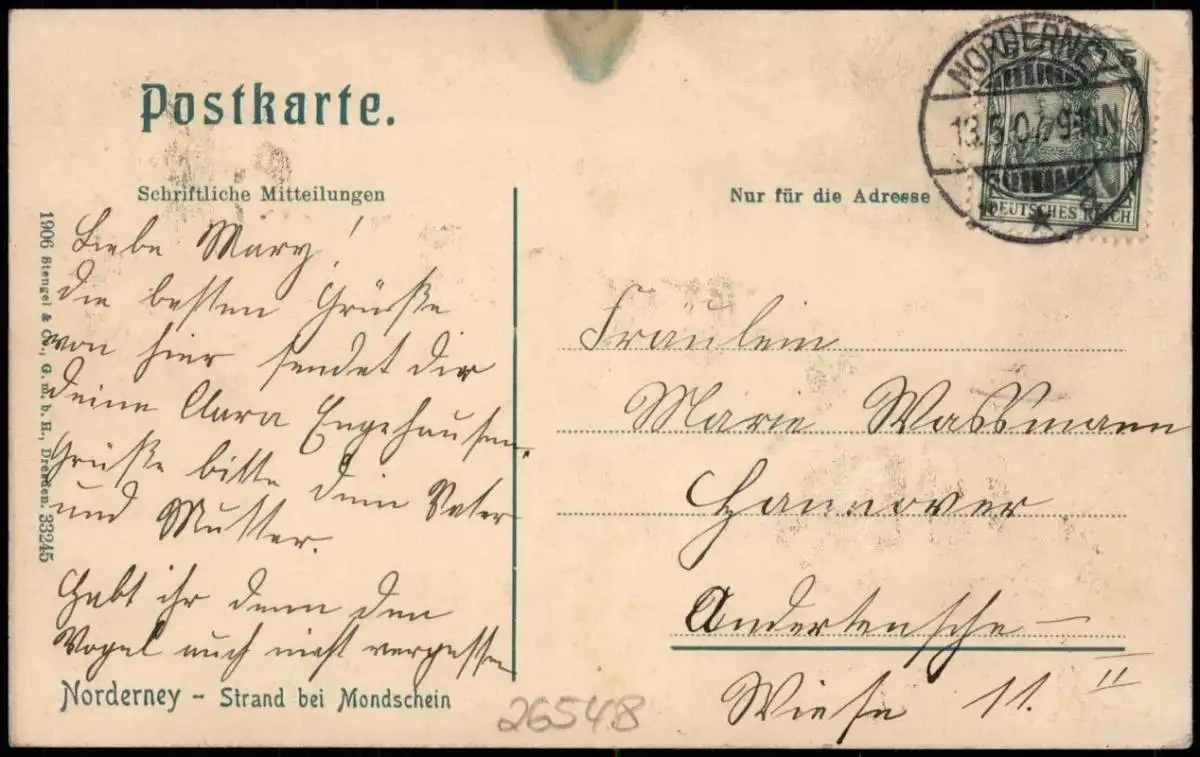 Postkarte.
Schriftliche Mitteilungen
Nur für die Adresse
NORDERNEY
13.5.07. 9-10N
DEUTSCHES REICH
1906 Stengel & Co., G. m. b. H., Dresden. 33245
Liebe Mary!
die besten Grüße
von hier sendet dir
deine Clara Engehausen.
Grüße bitte dein Vater
und Mutter.
Habt ihr denn den
Vogel auch nicht vergessen
Norderney – Strand bei Mondschein
Fräulein
Marie Wassmann
Hannover
Andertensche –
Wiese 11. II
26548